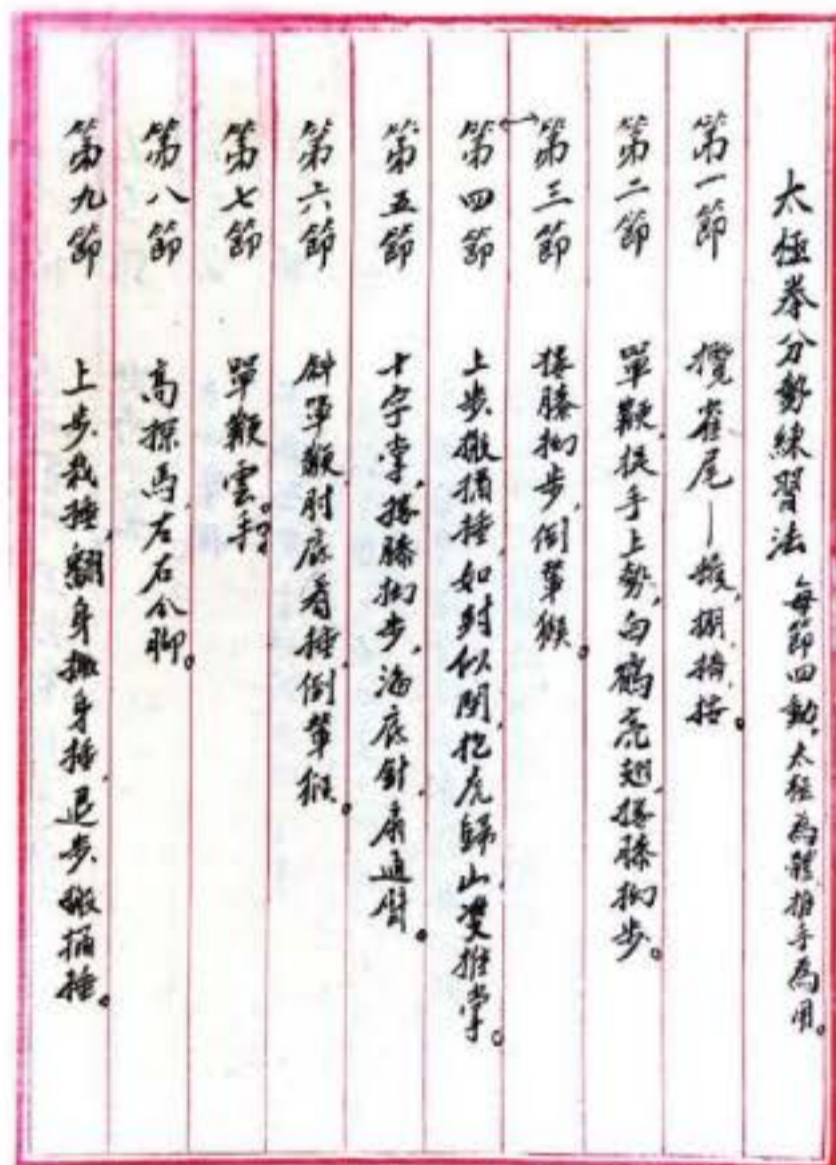 太極拳分勢練習法 每節四動，太極為體推手為用。
第一節 攬雀尾—掤，捋，擠，按。
第二節 單鞭，提手上勢，白鶴亮翅，摟膝拗步。
第三節 摟膝拗步，倒輦猴。
第四節 上步搬攔捶，如封似閉，抱虎歸山，雙推掌。
第五節 十字掌，摟膝拗步，海底針，扇通臂。
第六節 斜單鞭，肘底看捶，倒輦猴。
第七節 單鞭，雲手。
第八節 高探馬，左右分脚。
第九節 上步栽捶，翻身撇身捶，退步搬攔捶。